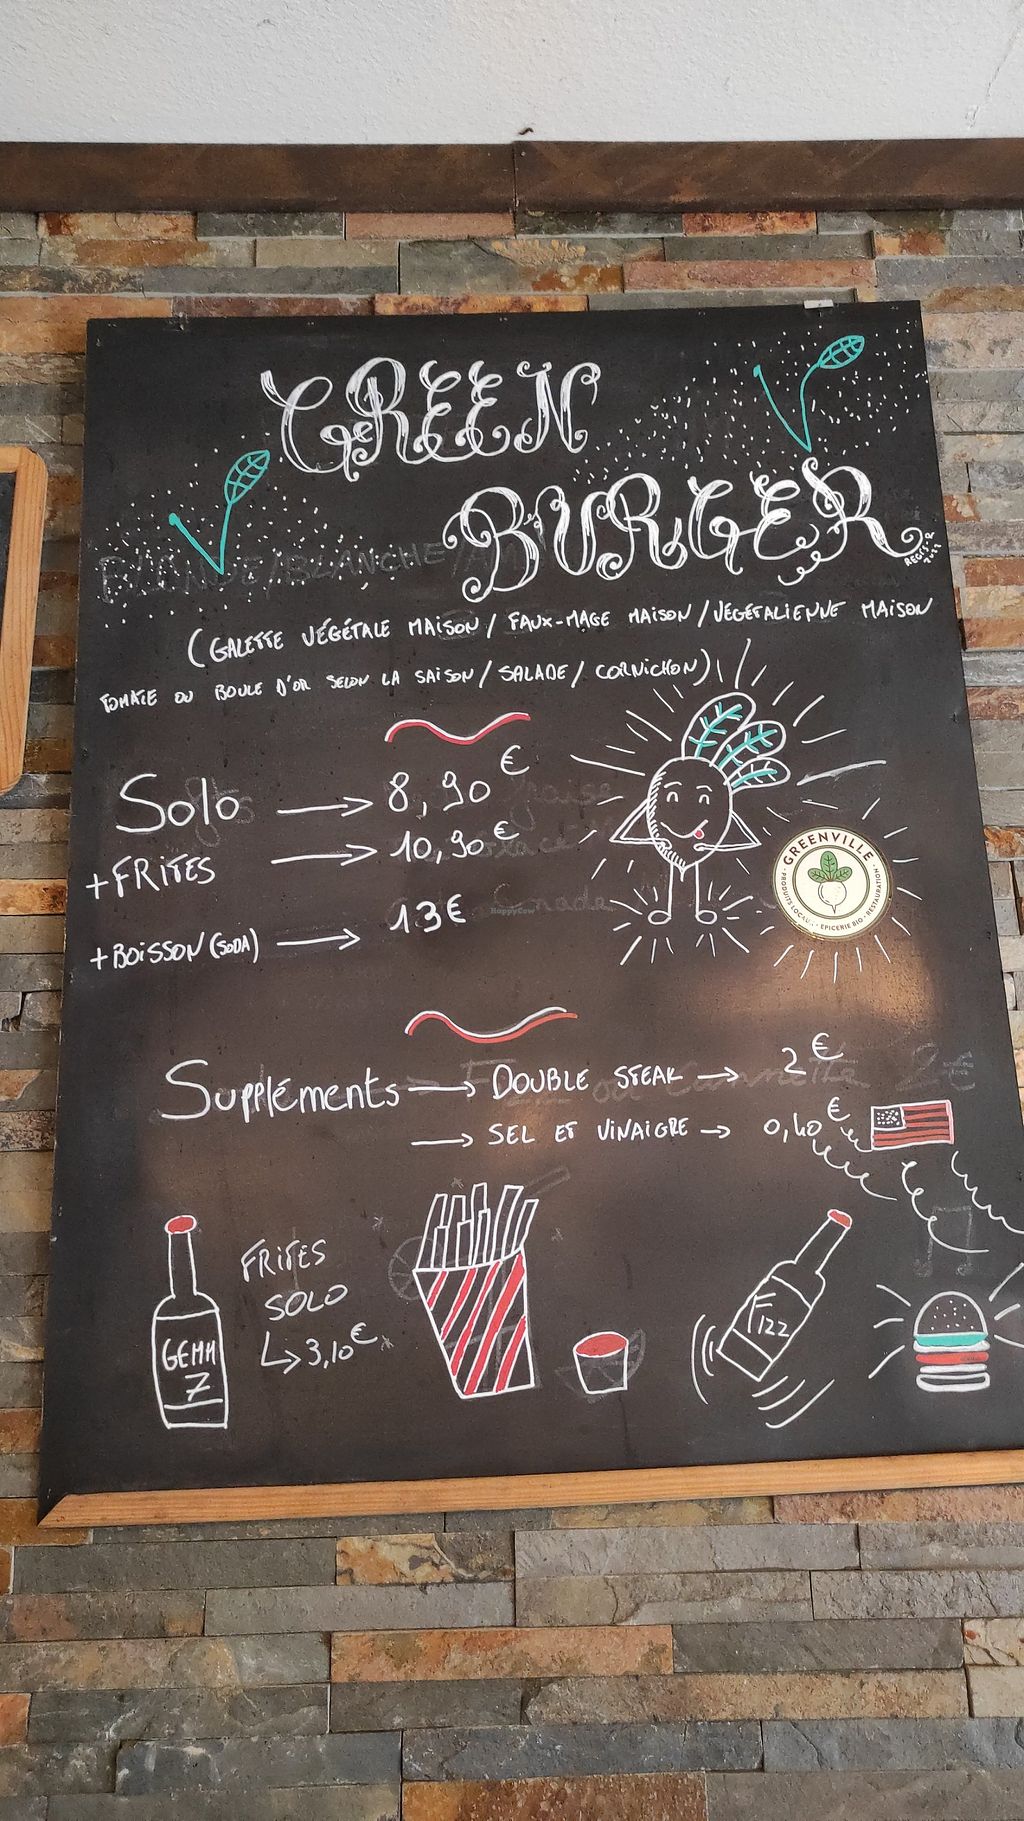 GREEN
BURGER
REGIS.R
BLONDE/BLANCHE/
(GALETTE VÉGÉTALE MAISON / FAUX-MAGE MAISON / VÉGÉTALIENNE MAISON
TOMATE OU BOULE D'OR SELON LA SAISON / SALADE / CORNICHON)
Solo → 8,90€
+FRITES → 10,90€
+BOISSON (SODA) → 13€
HappyCow
GREENVILLE
PRODUITS LOCAUX · EPICERIE BIO · RESTAURATION
SUPPLÉMENTS → DOUBLE STEAK → 2€
→ SEL ET VINAIGRE → 0,40€
FRITES
SOLO
↳ 3,10€
GEMM
7
FIZZ